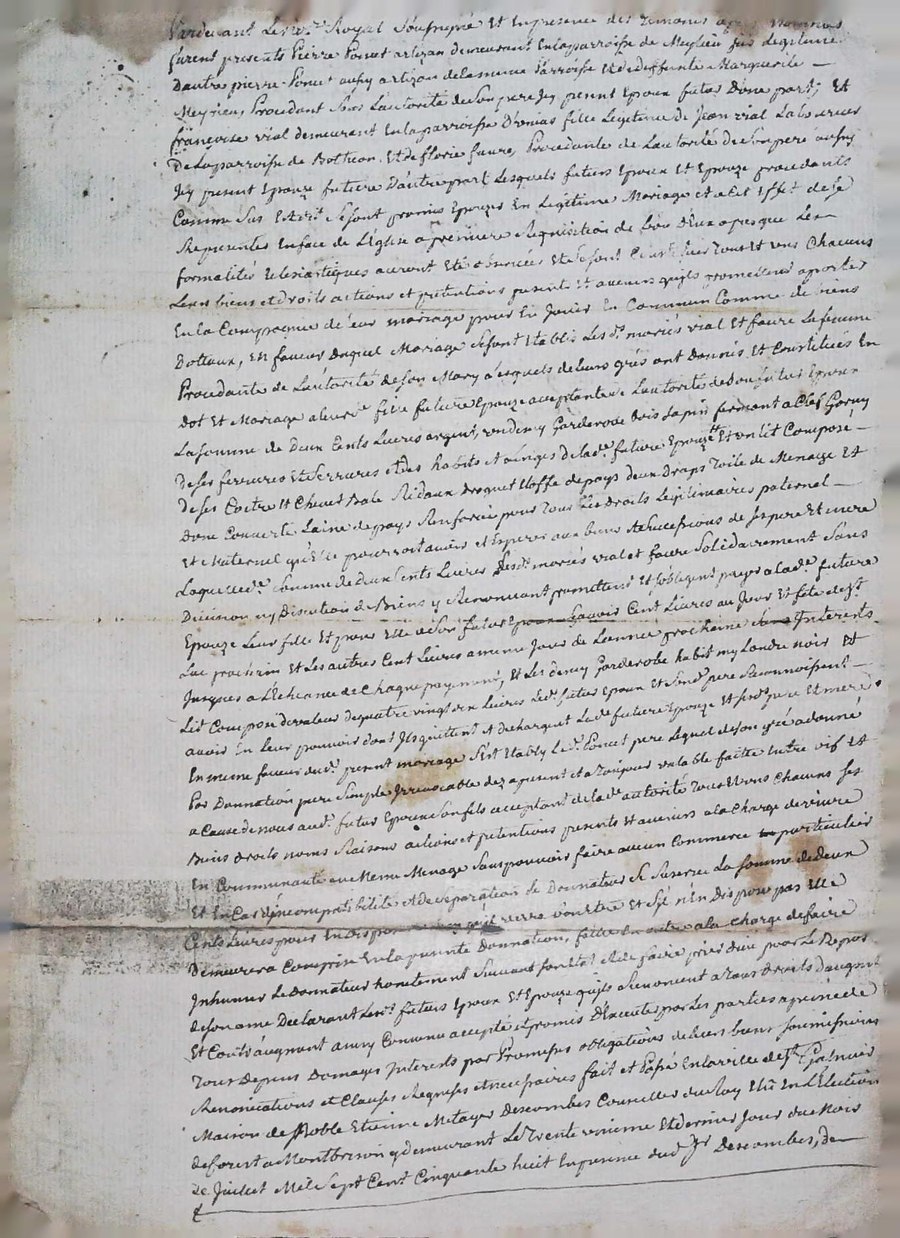 Pardevant Le No.re Royal Soussigné Et En presence des Temoins apres Nommés
furent presents Pierre Poncet artizan demeurant En la parroisse de Meylieu fils Legitime
D'autre pierre Poncet aussy artizan de la meme Parroisse et de deffunte Marguerite —
Meyrieu, Procedant Sous L'autorité de Son pere Icy present Epoux futur D'une part; Et
françoise vial demeurant En la parroisse fille Legitime de Jean vial Laboureur
De La parroisse de Botheon, Et de florie faure, Procedante de L'autorité de Son pere aussy
Icy present Epouze future D'autre part Lesquels futurs Epoux Et Epouze procedants
Comme Sus Est dit Se Sont promis Epouzer En Legitime Mariage Et a cet Effet de Se
Representer En face de L'Eglise a premiere Requisition de L'un D'eux apres que Les
formalités Eclesiastiques auront Eté observées Et Se Sont Constitués Tous Et uns Chacuns
Leurs biens et Droits actions et pretentions presents Et avenirs qu'ils promettent aporter
En la Compagnie de leur mariage pour En Jouir En Commun Comme de biens
Dottaux, En faveur Duquel Mariage Se Sont Etablis Les d. mariés vial Et faure La femme
Procedante de L'autorité de Son Mary Lesquels de Leurs grés ont Donnés Et Constitués En
Dot Et Mariage a leur d. fille future Epouze acceptante de L'autorité de Son futur Epoux
La Somme de Deux Cents Livres argent, un demy Garderobe bois Sapin fermant a Clef Garny
De Ses ferrures Et Serrures et des habits et Linges de la d. future Epouze Et un Lit Composé —
De Ses Coitre Et Chevet Bale Ridaux Droguet Etoffe de pays deux Draps Toile de Menage Et
D'une Couverte Laine de pays pour Tous Les Droits Legitimaires paternel —
Et Maternel qu'Elle pourroit avoir et Esperer aux biens Et Successions de Ses pere Et mere
Laquelle d. Somme de deux Cents Livres Les d. mariés vial et faure Solidairement Sans
Division ny Discution de Biens y Renonçant promettent Et S'obligent payer a la d. future
Epouze Leur fille Et pour Elle a Son futur Epoux Scavoir Cent Livres au Jour Et fete de St.
Luc prochain Et Les autres Cent Livres a meme Jour de L'année prochaine Sans Interests
Jusques a L'Echeance de Chaque payement, Et Les demy Garderobe habits Et
Lit Composé de valeur de quatre vingt dix Livres Les d. futurs Epoux Et Son d. pere Reconnoissent —
avoir En Leur pouvoir dont Ils quittent Et dechargent La d. future Epouze Et Ses d. pere Et mere
En meme faveur du d. present mariage S'est Etably Le d. Poncet pere Lequel de Son gré a donné
Par Donnation pure Simple Irrevocable dez a present et a Toujours valable faitte Entre vifs Et
a Cause de noces au d. futur Epoux Son fils acceptant de la d. autorité Tous Et uns Chacuns Ses
Biens droits noms Raisons actions et pretentions presents Et avenirs a la Charge de vivre
En Communauté au Meme Menage Sans pouvoir faire aucun Commerce particulier
Et En Cas D'incompatibilité et de Separation Le Donnateur Se Reserve La Somme de deux
Cents Livres pour En Disposer Et S'il n'En Dispose pas Elle
Demeurera Comprise En la presente Donnation, faitte En outre a la Charge de faire
Inhumer Le Donnateur honetement Suivant Son Etat Et de faire prier Dieu pour Le Repos
de Son ame Declarant Les d. futurs Epoux Et Epouze qu'ils Renoncent a Tous Droits D'augment
Et Contr'augment ainsy Convenu accepté et promis D'executer par Les parties a peine de
Tous Depens Domages Interests par Promesses obligations de Leurs biens Soumissions
Renonciations et Clauses Requises et necessaires fait et Passé En la ville de St. Galmier
Maison de Noble Etienne Metayer Descombes Conseiller du Roy Elu En L'Election
de forest a Montbrison y demeurant Le Trente unieme Et dernier Jour du Mois
de Juillet Mil Sept Cent Cinquante huit En presence du d. Sr. Descombes, de —